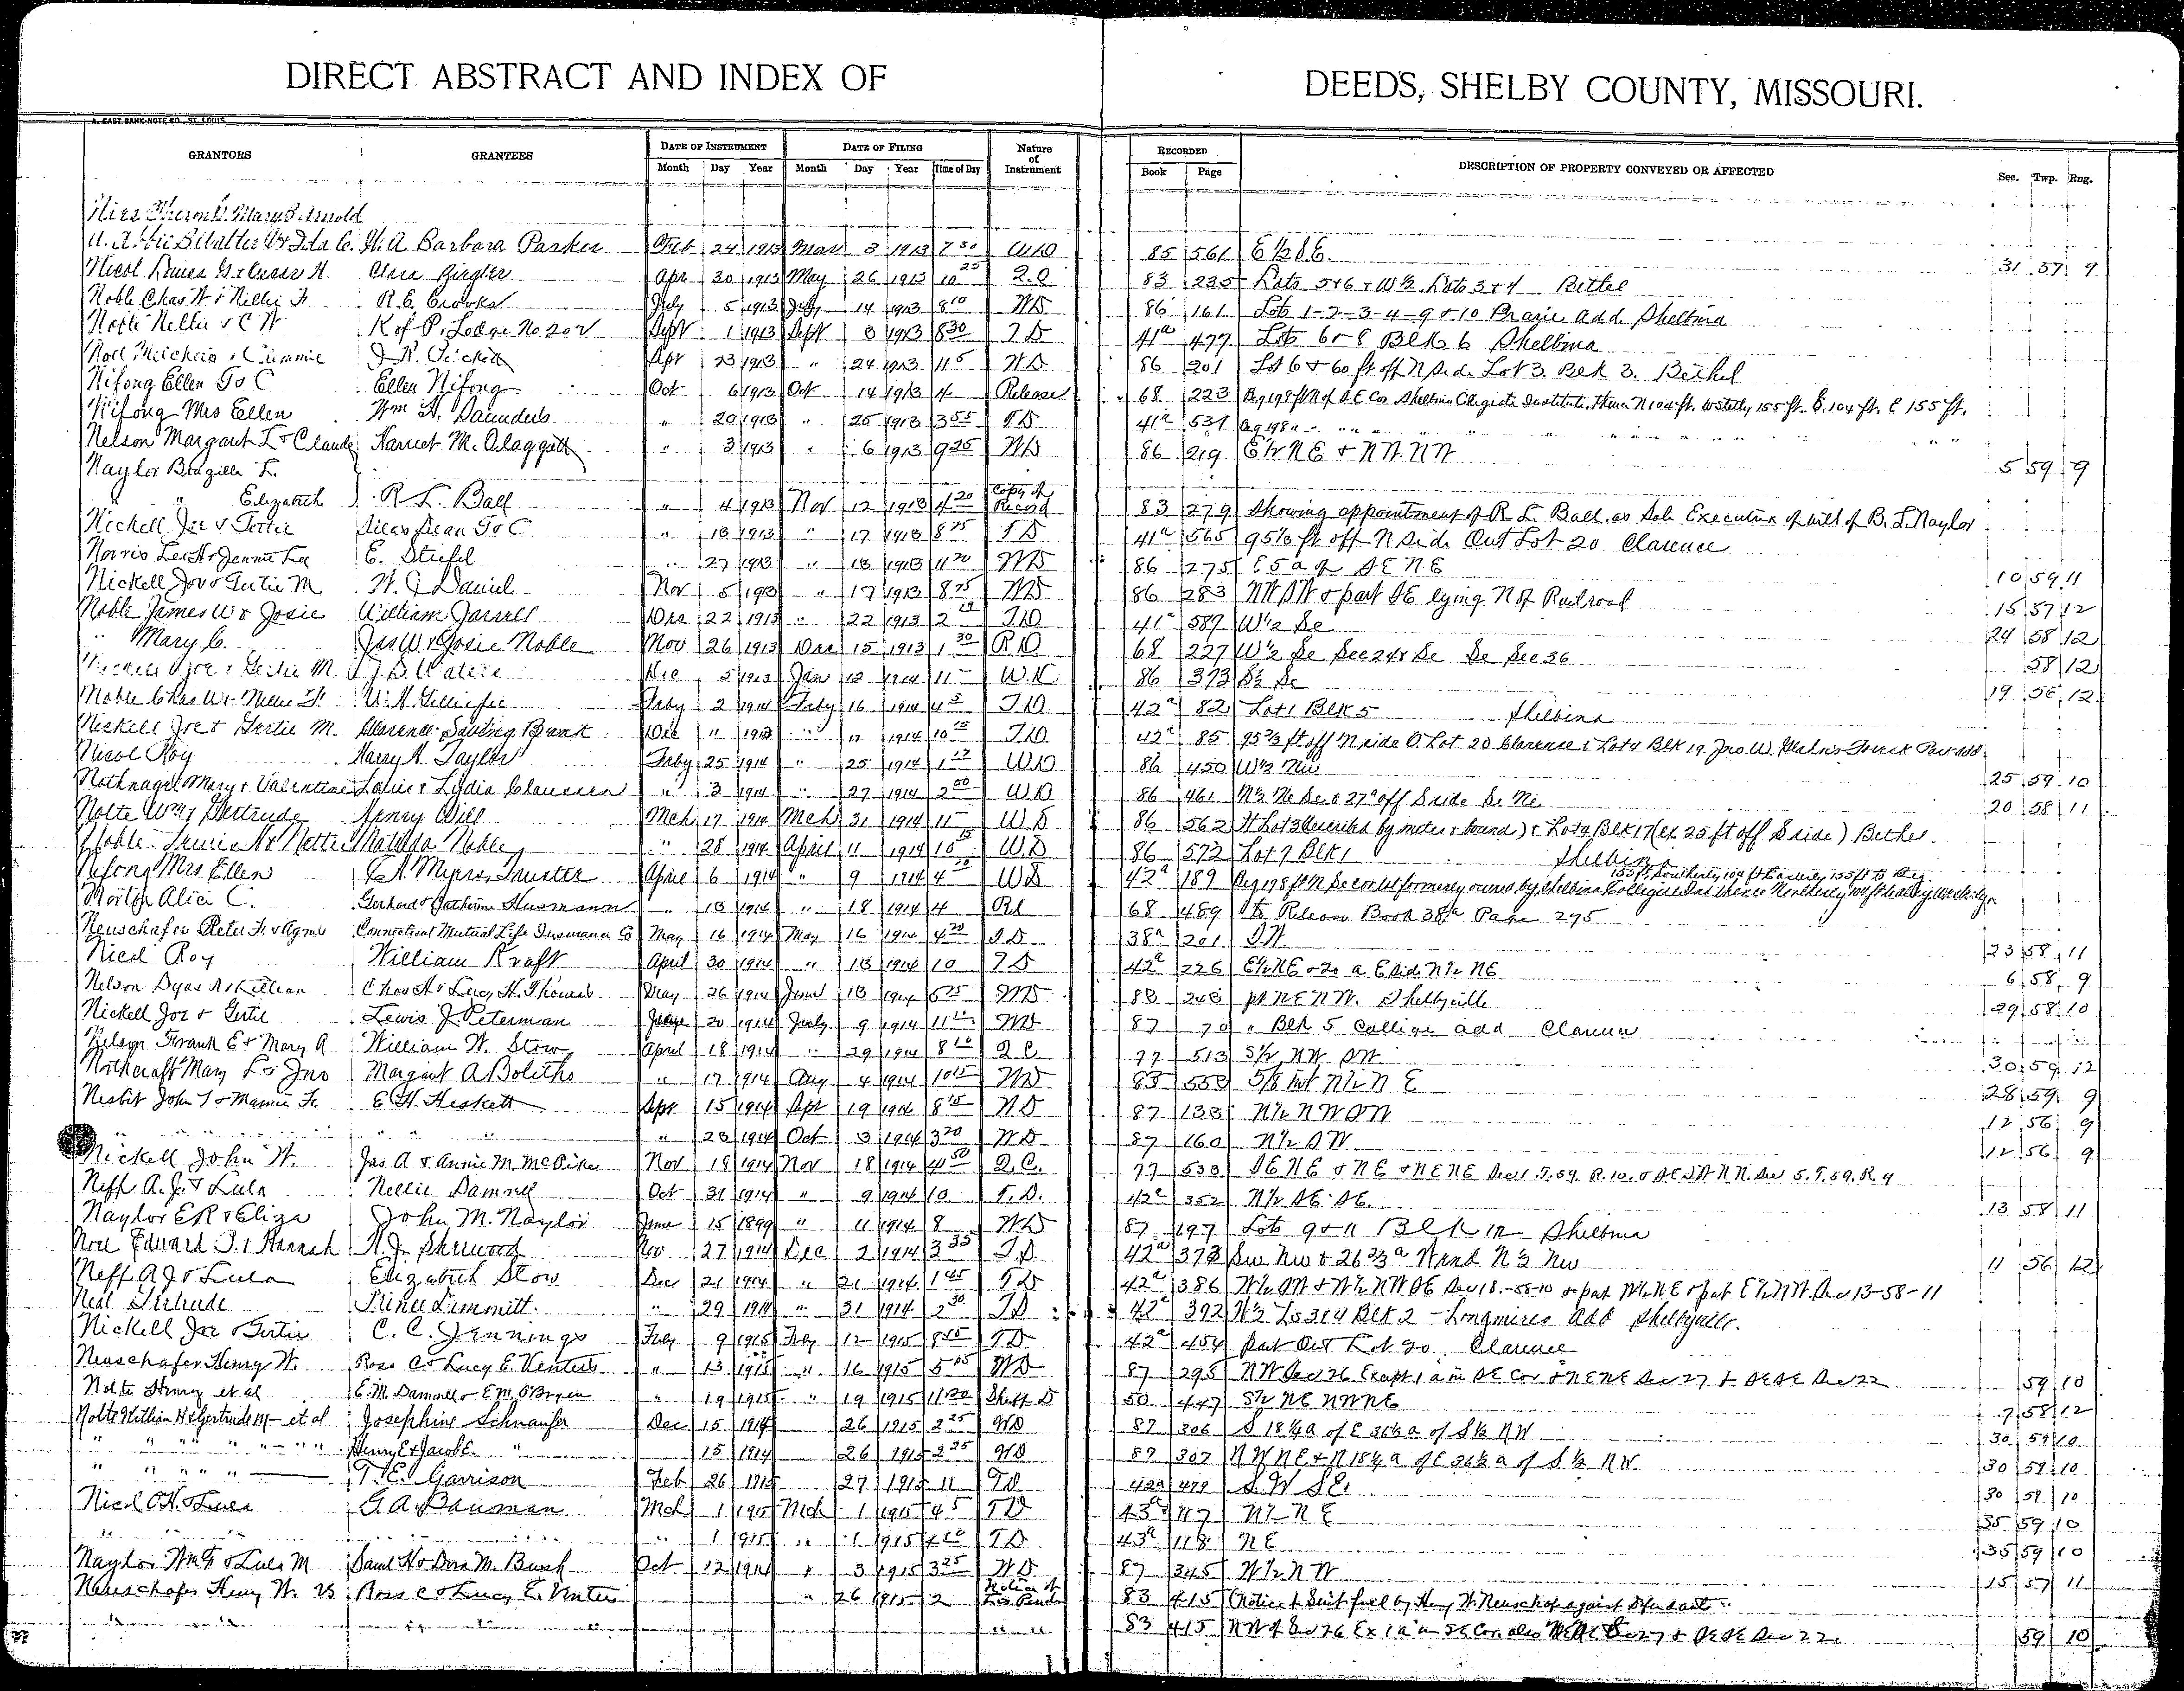 DIRECT ABSTRACT AND INDEX OF DEEDS, SHELBY COUNTY, MISSOURI.
GRANTORS GRANTEES DATE OF INSTRUMENT DATE OF FILING Nature of Instrument RECORDED DESCRIPTION OF PROPERTY CONVEYED OR AFFECTED Sec. Twp. Rng.
Month Day Year Month Day Year Time of Day Book Page
Mary E Arnold
Barbara Parker Feb 24 1913 Mar 3 1913 7 30 WD 85 561 E ½ SE 31 57 9
Nicol Clara Ziegler Apr 30 1913 May 26 1913 10 25 Q.C 83 235 Lots 5 & 6 & W ½ Lots 3 & 4 Bethel
Noble Chas W & Nellie F R.E. Crooks July 5 1913 July 14 1913 8 10 WD 86 161 Lots 1-2-3-4-9 & 10 Prairie add. Shelbina
Noble Nellie & C W K of P. Lodge No 202 Sept 1 1913 Sept 3 1913 8 30 TD 41a 477 Lots 6 & 8 Blk 6 Shelbina
J. R. Pickett Apr 23 1913 " 24 1913 11 5 WD 86 201 Lot 6 & 60 ft off N Side Lot 3. Blk 3. Bethel
Nifong Ellen To C Ellen Nifong Oct 6 1913 Oct 14 1913 4 Release 68 223 Beg 198 ft N of S.E Cor Shelbina Collegiate Institute, thence N 104 ft. Westerly 155 ft. S. 104 ft. E 155 ft.
Nifong Mrs Ellen Wm H. Saunders " 20 1913 " 25 1913 3 55 TD 41a 531 Beg 198 " " " "
Nelson Margaret L & Claude Harriet M. Claggett " 3 1913 " 6 1913 9 25 WD 86 219 E ½ NE & NW. NW 5 59 9
Naylor Brazilla L.
" " Elizabeth R L. Ball " 4 1913 Nov 12 1913 4 20 Copy of Record 83 279 Showing appointment of R L. Ball, as Sole Executor of will of B. L. Naylor
Nickell Joe & Gertie Silas Dean To C " 18 1913 " 17 1913 8 25 TD 41a 565 95⅔ ft off N Side Out Lot 20 Clarence
Norris Lee A & Jennie Lee E. Stiefel " 27 1913 " 18 1913 11 20 WD 86 275 E 5 a of SE NE 10 59 11
Nickell Joe & Gertie M. W. J. Daniel Nov 5 1913 " 17 1913 8 25 WD 86 283 NW SW & part SE lying N of Railroad 15 57 12
Noble James W & Josie William Jarrell Dec 22 1913 " 22 1913 2 TD 41a 587 W ½ Se 24 58 12
" Mary C. Jas W & Josie Noble Nov 26 1913 Dec 15 1913 1 30 RD 68 227 W ½ Se Sec 24 & Se Se Sec 36 58 12
Nickell Joe & Gertie M. Dec 5 1913 Jan 12 1914 11 W.D. 86 373 S ½ Se 19 56 12
Noble Chas W & Nellie F. W. H. Gillispie Feby 2 1914 Feby 16 1914 4 5 TD 42a 82 Lot 1 Blk 5 Shelbina
Nickell Joe & Gertie M. Clarence Savings Bank Dec 11 1913 " 17 1914 10 15 TD 42a 85 95⅔ ft off N side O. Lot 20 Clarence & Lot 4 Blk 19 Jno. W.
Nicol Roy Harry A. Taylor Feby 25 1914 " 25 1914 WD 86 450 W ½ Nw 25 59 10
Nothnagel Mary & Valentine Louis & Lydia Claussen " 3 1914 " 27 1914 2 00 WD 86 461 N ½ Ne Se & 27a off S side Se Ne 20 58 11
Nolte Wm & Gertrude Henry Will Mch 17 1914 Mch 31 1914 11 WD 86 562 Pt Lot 3 (described by metes & bounds) & Lot 4 Blk 17 (ex 25 ft off S side) Bethel.
Matilda Noble " 28 1914 April 11 1914 10 15 WD 86 572 Lot 7 Blk 1 Shelbina
Nifong Mrs Ellen C. A. Myers, Trustee April 6 1914 " 9 1914 4 WD 42a 189 Beg 198 ft N Se cor Lot formerly owned by Shelbina Collegiate Inst thence Northerly 104 ft Westerly 155 ft, Southerly 104 ft Easterly 155 ft to Beg.
Alice C. Gerhard & Catherine Husmann " 18 1914 " 18 1914 4 Rel 68 489 To Release Book 38a Page 295
Neuschafer Peter F. & Agnes Connecticut Mutual Life Insurance Co May 16 1914 May 16 1914 4 20 TD 38a 201 S.W. 23 58 11
Nicol Roy William Kraft April 30 1914 " 18 1914 10 TD 42a 226 E ½ NE & 20 a E Side N ½ NE 6 58 9
Nelson Dyas A & Lillian Chas A & Lucy H. Thomas May 26 1914 June 18 1914 5 25 WD 83 248 pt NE NW. Shelbyville 29 58 10
Nickell Joe & Gertie Lewis J. Peterman June 20 1914 July 9 1914 11 WD 87 70 " Blk 5 College add Clarence
Nelson Frank E & Mary A William W. Stow April 18 1914 " 29 1914 8 10 Q.C. 77 513 S ½ NW SW 30 59 12
Northcraft Mary L & Jno Margaret A Bolitho " 17 1914 Aug 4 1914 10 15 WD 83 553 5/8 Int N ½ N E 28 59 9
Nesbit John T & Mamie F. E H. Heskett Sept 15 1914 Sept 19 1914 8 15 WD 87 133 N ½ NW SW 12 56 9
" " " " 28 1914 Oct 3 1914 3 20 WD 87 160 N ½ S W 12 56 9
Nickell John W. Jas. A & Annie M. McPike Nov 18 1914 Nov 18 1914 4 50 Q.C. 77 538 SE NE & NE & NE NE Sec 1. T. 59. R. 10. & SE SW NW. Sec 5. T. 59. R. 9
Neff A. J. & Lula Nellie Damrell Oct 31 1914 " 9 1914 10 T.D. 42a 352 N ½ SE SE. 13 58 11
Naylor E R & Eliza John M. Naylor June 15 1899 " 11 1914 8 WD 87 197 Lots 9 & 11 Blk 12 Shelbina
Noel Edward T. & Hannah A. J. Sherwood Nov 27 1914 Dec 2 1914 3 35 T.D. 42a 373 Sw Nw & 26⅔a W end N ½ Nw 11 56 12
Neff A J & Lula Elizabeth Stow Dec 21 1914 " 21 1914 1 45 TD 42a 386 W ½ SW & W ½ NW SE Sec 18.-58-10 & part W ½ NE & pat. E ½ NW. Sec 13-58-11
Neal Gertrude Prince Dimmitt. " 29 1914 " 31 1914 2 30 TD 42a 392 N ½ Ls 3 & 4 Blk 2 - Longmires Add Shelbyville.
Nickell Joe & Gertie C. C. Jennings Feby 9 1915 Feby 12 1915 8 45 TD 42a 454 part Out Lot 20. Clarence
Neuschafer Henry W. Ross C & Lucy E. Venters " 13 1915 " 16 1915 5 05 WD 87 295 NW Sec 26 Except 1 a in SE Cor & NE NE Sec 27 & SE SE Sec 22 59 10
Nolte Henry et al E.M. Damrell & E M. O'Bryen " 19 1915 " 19 1915 11 20 Sheff D 50 447 S ½ NE NW NE 7 58 12
Nolte William H & Gertrude M - et al Josephine Schnaufer Dec 15 1914 26 1915 2 25 WD 87 306 S 18¼ a of E 36½ a of S ½ NW 30 59 10
" " " " Henry E & Jacob E. " 15 1914 26 1915 2 25 WD 87 307 NW NE & N 18¼ a of E 36½ a of S ½ NW 30 59 10
" " " " T. E. Garrison Feb 26 1915 27 1915 11 TD 42a 479 S. W SE. 30 59 10
Nicol O.H. & Lula G A. Bauman Mch 1 1915 Mch 1 1915 4 5 TD 43a 117 N ½ N E 35 59 10
" " " " 1 1915 " 1 1915 4 10 TD 43a 118 NE 35 59 10
Naylor Wm F & Lula M Saml H & Dora M. Bush Oct 12 1914 " 3 1915 3 25 WD 87 345 W ½ N W 15 57 11
Neuschafer Henry W. VS Ross C & Lucy E. Venters " 26 1915 2 Notice of Lis Pendens 83 415 (Notice of Suit filed by Henry W. Neuschafer against Defendant
" " " " " " 83 415 NW of Sec 26 Ex 1 a in SE Cor also NE NE Sec 27 & SE SE Sec 22. 59 10